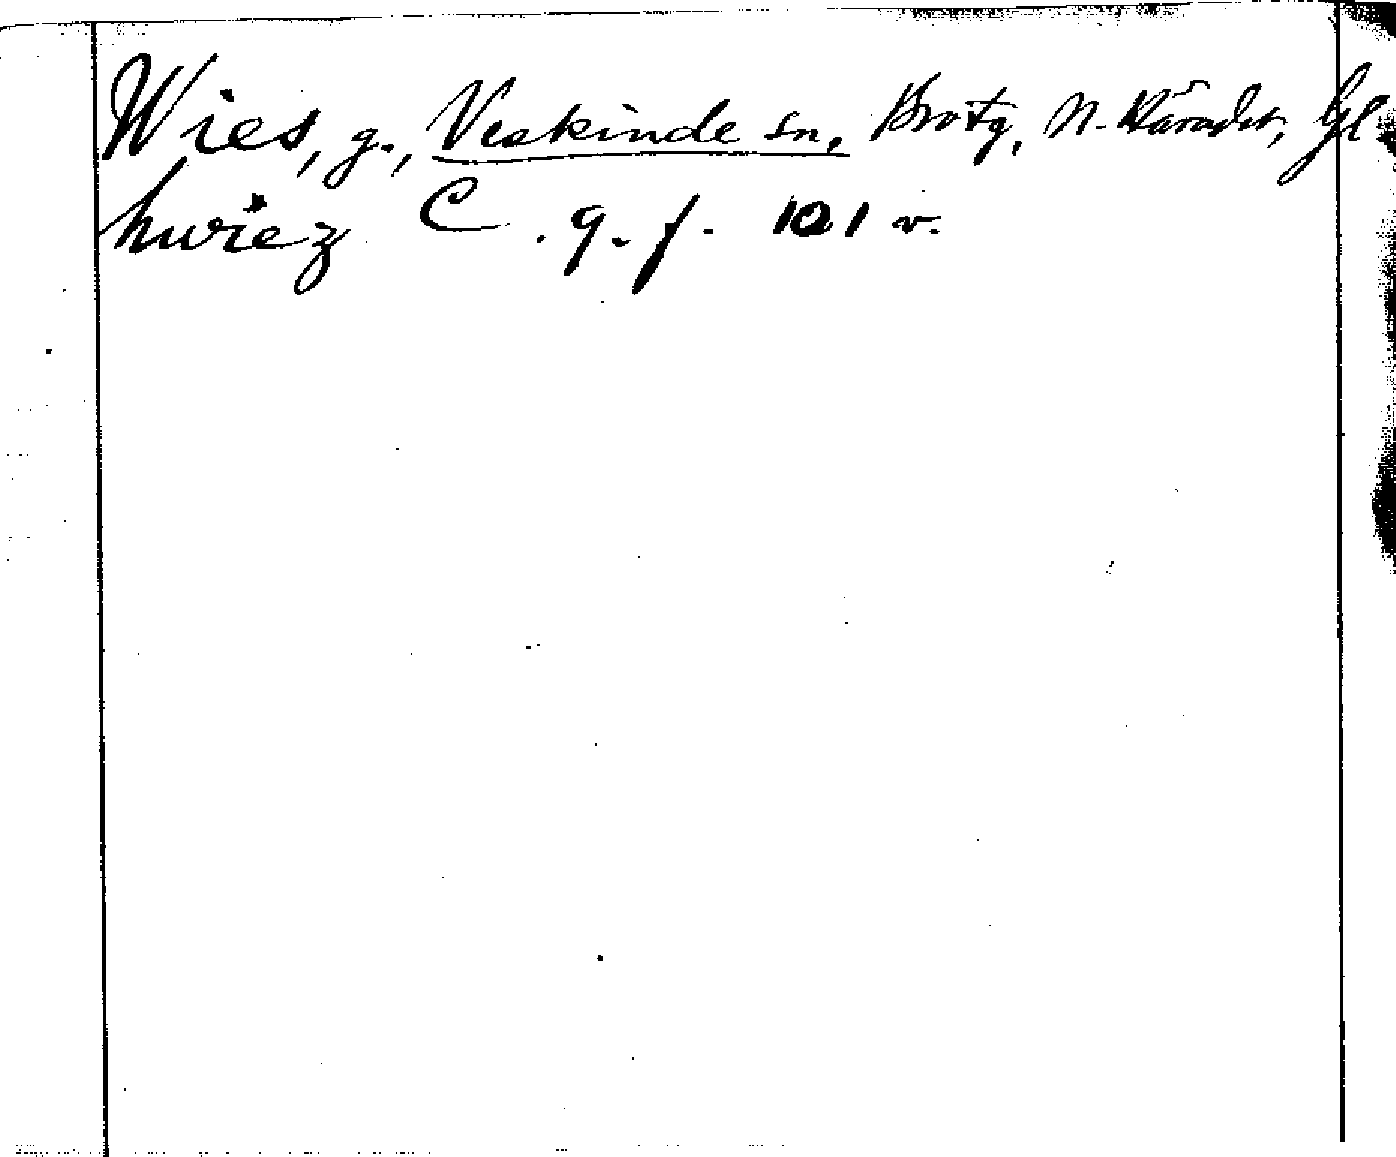 Wies, g., Veskinde sn, Brotg, N. Häradet, Gl
hwiez C. 9. f. 101 v.